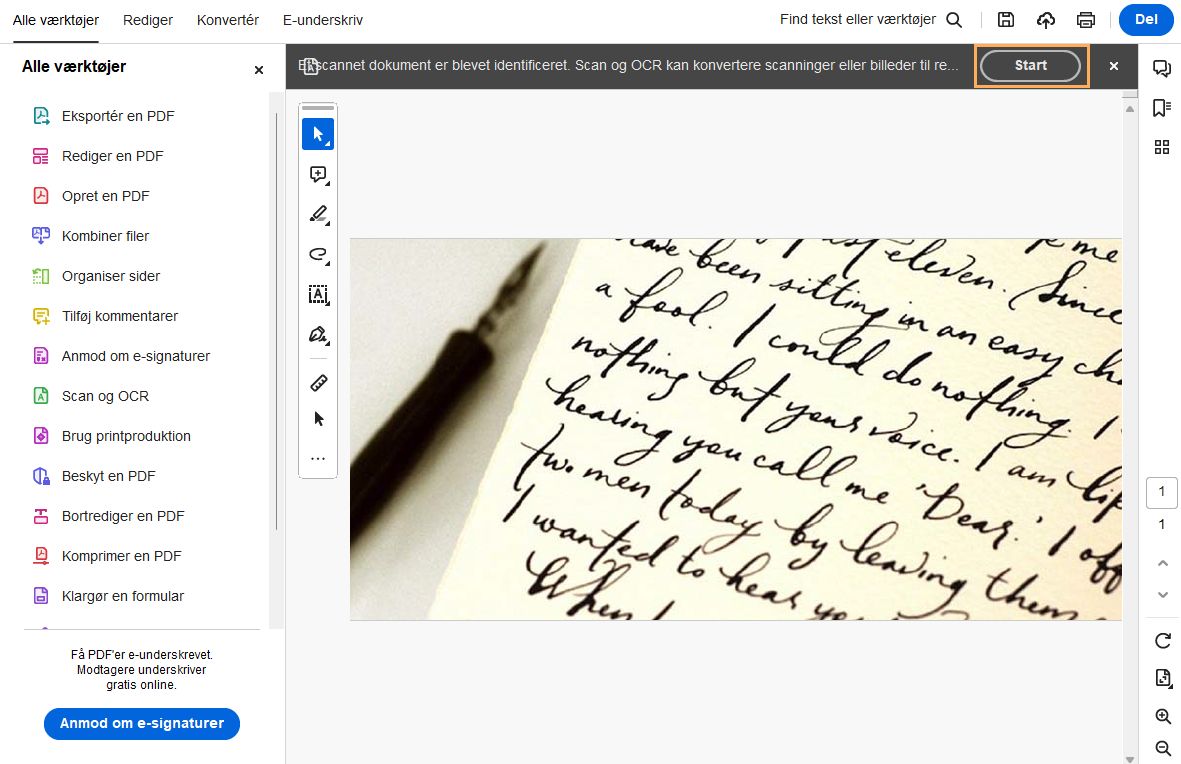 Alle værktøjer
Rediger
Konvertér
E-underskriv
Find tekst eller værktøjer
Del
Alle værktøjer
Eksportér en PDF
Rediger en PDF
Opret en PDF
Kombiner filer
Organiser sider
Tilføj kommentarer
Anmod om e-signaturer
Scan og OCR
Brug printproduktion
Beskyt en PDF
Bortrediger en PDF
Komprimer en PDF
Klargør en formular
Få PDF'er e-underskrevet.
Modtagere underskriver
gratis online.
Anmod om e-signaturer
scannet dokument er blevet identificeret. Scan og OCR kan konvertere scanninger eller billeder til re...
Start
eleven. Since
been sitting in an easy
a fool. I could do nothing. I
nothing but your voice. I am
hearing you call me 'Dear.' I
two men today by leaving them
I wanted to hear
When I
1
1